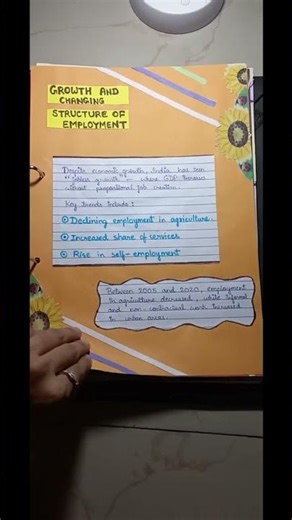 GROWTH AND
CHANGING
STRUCTURE OF
EMPLOYMENT
Despite economic growth, India has seen
"jobless growth" – where GDP increases
without proportional job creation.
Key trends include :
Declining employment in agriculture.
Increased share of services
Rise in self-employment
Between 2005 and 2020, employment
in agriculture decreased, while informal
and non-contractual work increased
in urban areas.